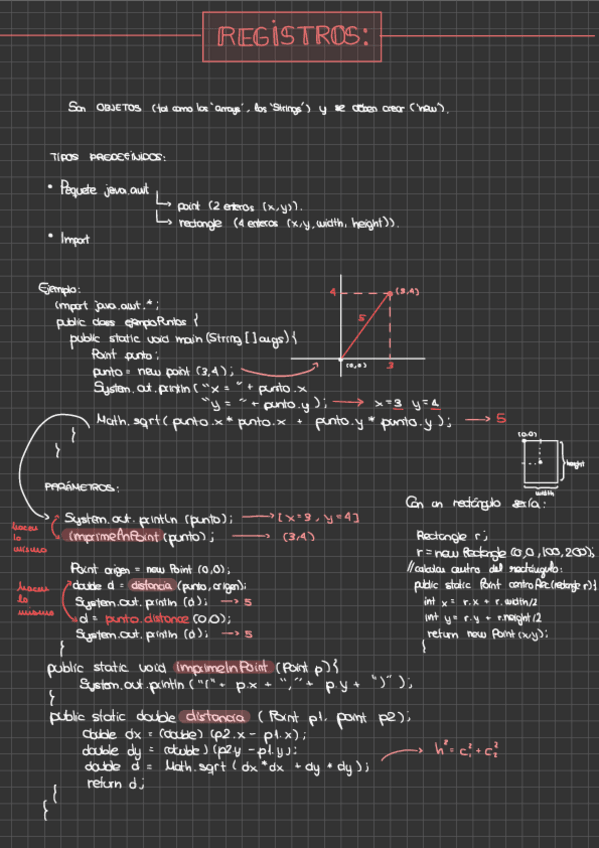 REGISTROS:
Son OBJETOS (tal como los 'arrays', los 'Strings') y se deben crear ('new').
TIPOS PREDEFINIDOS:
• Paquete java.awt
↳ point (2 enteros (x,y)).
↳ rectangle (4 enteros (x,y,width,height)).
• Import
Ejemplo:
import java.awt.*;
public class ejemploPuntos {
public static void main (String[] args) {
Point punto;
punto = new point (3,4);
System.out.println ("x = " + punto.x
"y = " + punto.y ); → x=3 y=4
Math.sqrt ( punto.x * punto.x + punto.y * punto.y ); → 5
}
}
4
(3,4)
5
(0,0)
3
PARÁMETROS:
System.out.println (punto); → [x=3, y=4]
imprimeInPoint (punto); → (3,4)
hacen
lo
mismo
Point origen = new Point (0,0);
double d = distancia (punto, origen);
System.out.println (d); → 5
d = punto.distance (0,0);
System.out.println (d); → 5
}
hacen
lo
mismo
public static void imprimeInPoint (Point p) {
System.out.println ("(" + p.x + "," + p.y + ")" );
}
public static double distancia ( Point p1, point p2);
double dx = (double) (p2.x - p1.x);
double dy = (double) (p2.y - p1.y);
double d = Math.sqrt ( dx*dx + dy*dy );
return d;
}
}
h² = c₁² + c₂²
(0,0)
height
width
Con un rectángulo sería:
Rectangle r;
r = new Rectangle (0,0,100,200);
//calcular centro del rectángulo:
public static Point centroRec (rectangle r) {
int x = r.x + r.width/2
int y = r.y + r.height/2
return new Point (x,y);
}